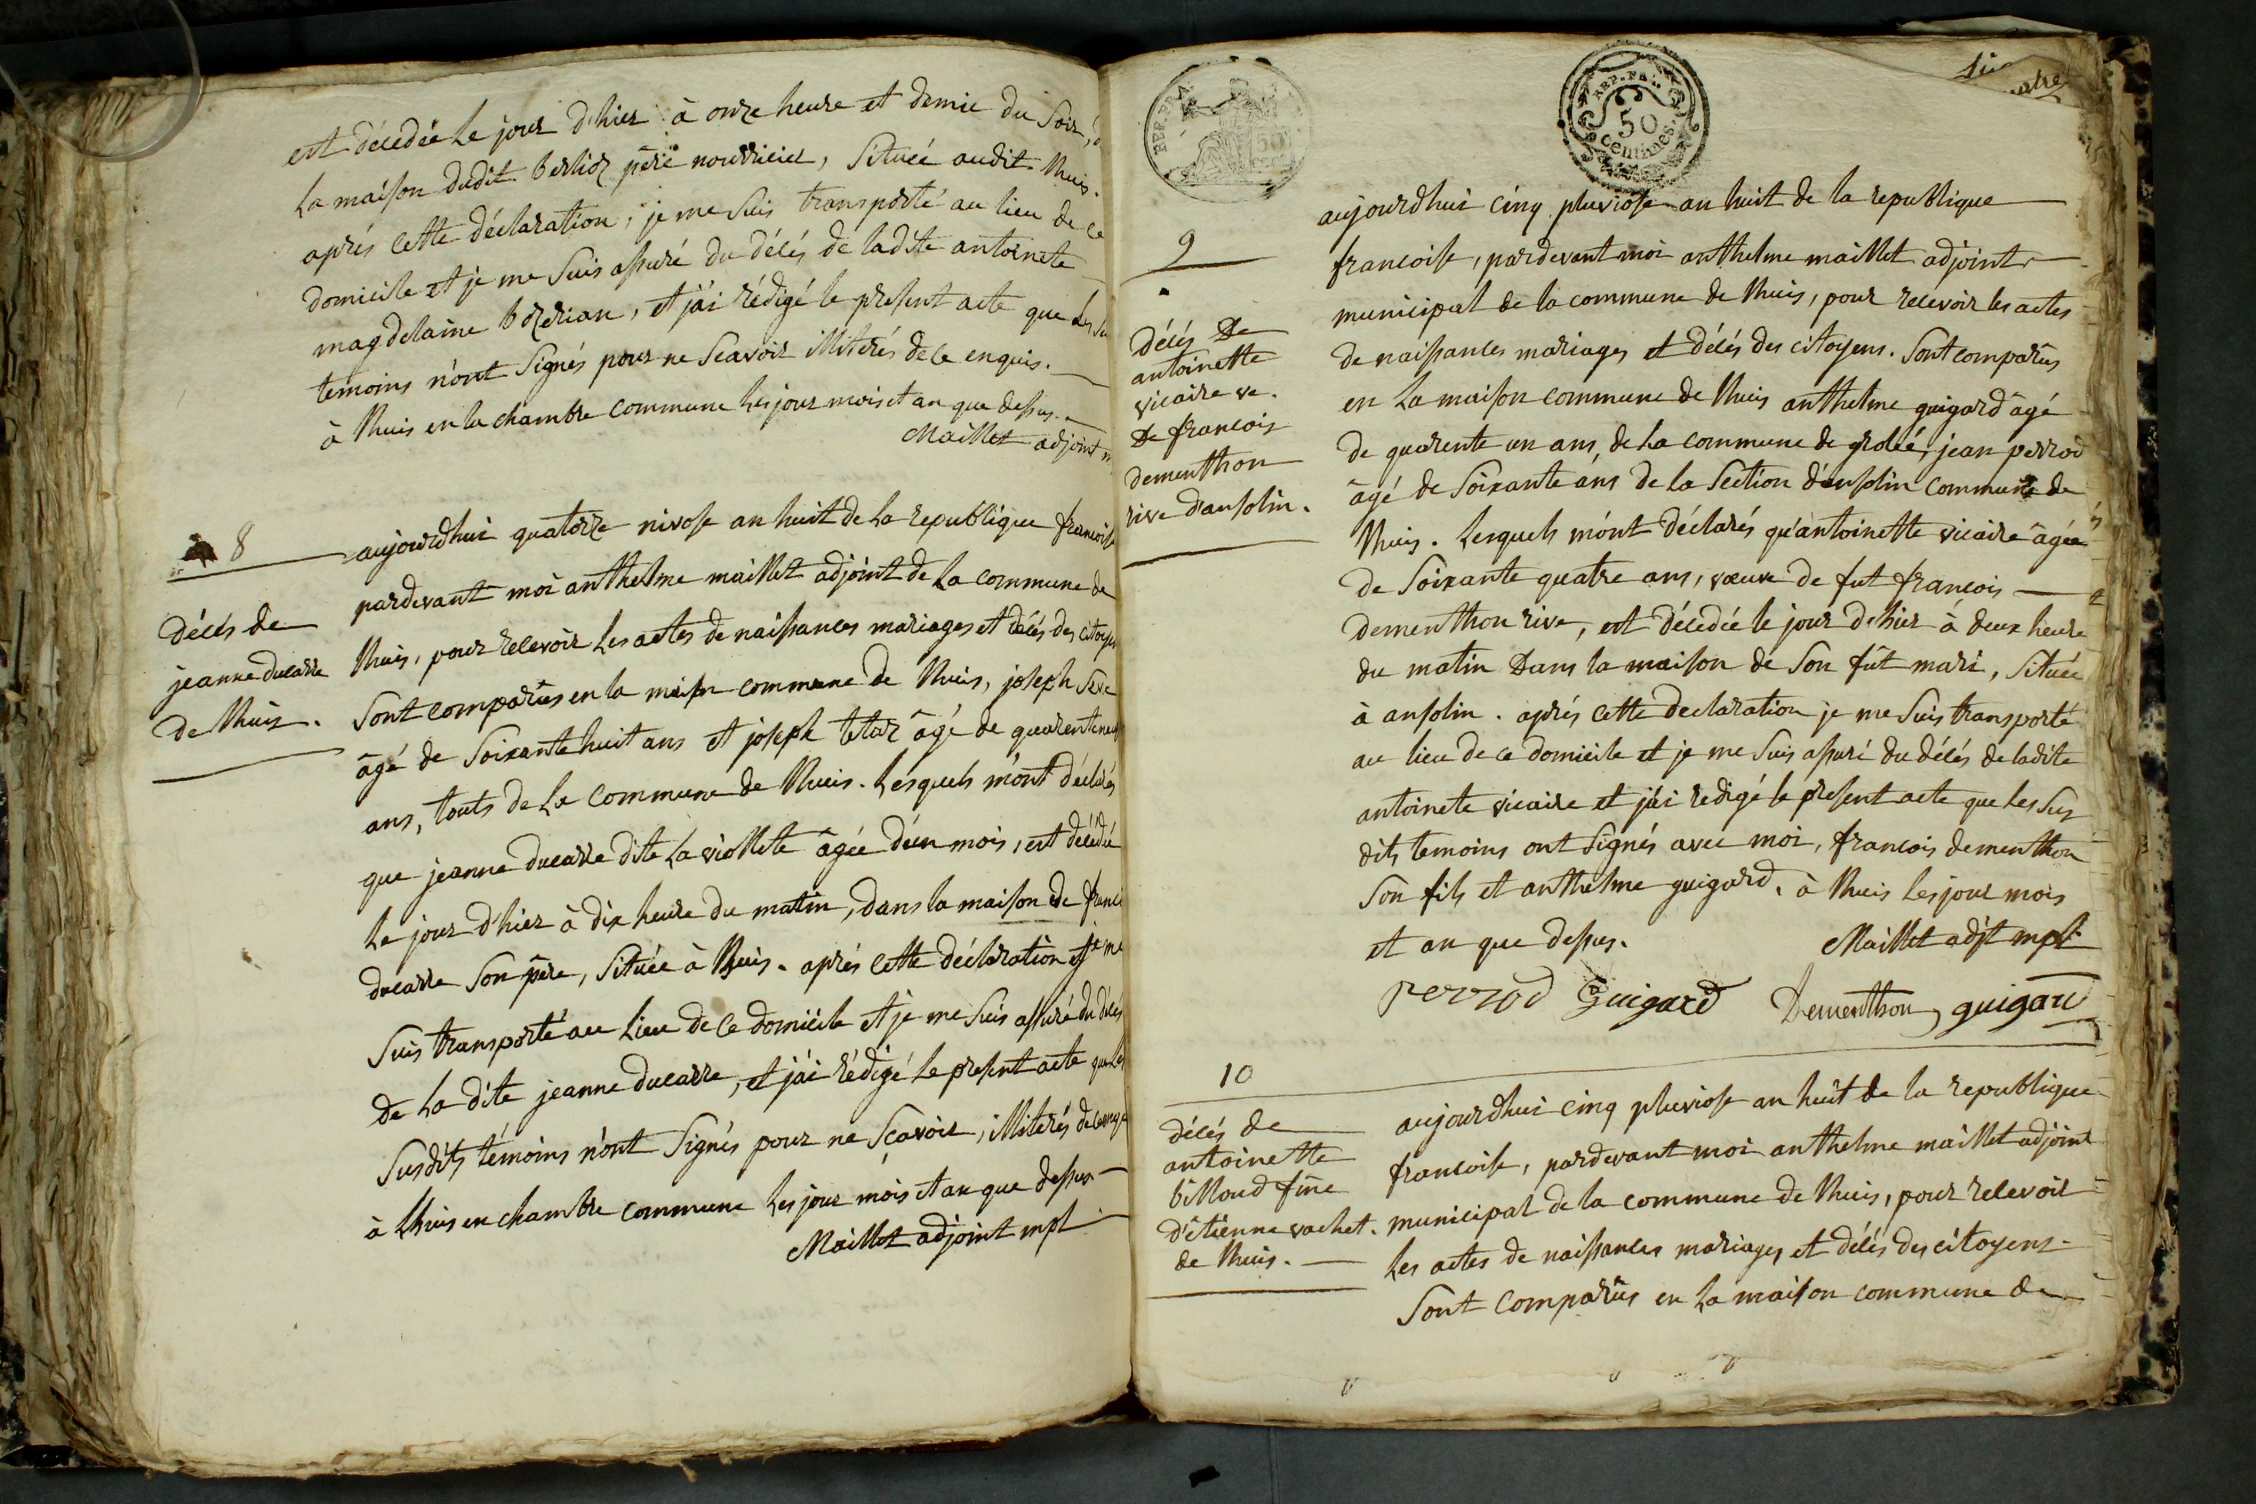 est décedée le jour d'hier à onze heure et demie du soir,
la maison dudit berlioz père nourricier, située audit lhuis.
aprés cette déclaration, je me suis transporté au lieu de ce
domicile et je me suis assuré du décés de ladite antoinete
magdelaine bozerian, et j'ai rédigé le present acte que les
temoins n'ont signés pour ne scavoir illiterés de ce enquis.
à lhuis en la chambre commune les jour mois et an que dessus.
Maillet adjoint
8
décés de
jeanne ducarre
de lhuis.
aujourd'hui quatorze nivose an huit de la republique francoise
pardevant moi anthelme maillet adjoint de la commune de
lhuis, pour recevoir les actes de naissances mariages et décés des citoyens
sont comparûs en la maison commune de lhuis, joseph seve
âgé de soixante huit ans et joseph tetaz âgé de quarente neuf
ans, touts de la commune de lhuis. lesquels m'ont déclarés
que jeanne ducarre dite la viollete âgée d'un mois, est décédée
le jour d'hier à dix heure du matin, dans la maison de
ducarre son père, située à lhuis. aprés cette déclaration et je me
suis transporté au lieu de ce domicile et je me suis assuré du décés
de la dite jeanne ducarre, et j'ai rédigé le present acte que les
susdits témoins n'ont signés pour ne scavoir, illiterés de ce enquis
à lhuis en chambre commune les jour mois et an que dessus
Maillet adjoint mpl
REP. FRA.
50
REP. FRA.
50
centimes.
9
décés de
antoinette
vicaire ve.
de francois
dementhon
rive d'ansolin.
aujourdhui cinq pluviose an huit de la republique
francoise, pardevant moi anthelme maillet adjoint
municipal de la commune de lhuis, pour recevoir les actes
de naissances mariages et décés des citoyens. sont comparûs
en la maison commune de lhuis anthelme guigard âgé
de quarente un ans, de la commune de groleé, jean perrod
âgé de soixante ans de la section d'ansolin commune de
lhuis. lesquels m'ont déclarés qu'antoinette vicaire âgée
de soixante quatre ans, vœuve de fut francois
dementhon rive, est décedée le jour d'hier à deux heure
du matin dans la maison de son fût mari, située
à ansolin. aprés cette declaration je me suis transporté
au lieu de ce domicile et je me suis assuré du décés de ladite
antoinete vicaire et j'ai redigé le present acte que les sus
dits temoins ont signés avec moi, francois dementhon
son fils et anthelme guigard. à lhuis les jour mois
et an que dessus.
Maillet adjt mpl
perrod Guigard Dementhon guigard
10
décés de
antoinette
billoud fme
d'étienne vachet.
de lhuis.
aujourdhui cinq pluviose an huit de la republique
francoise, pardevant moi anthelme maillet adjoint
municipal de la commune de lhuis, pour recevoir
les actes de naissances mariages et décés des citoyens
sont comparûs en la maison commune de